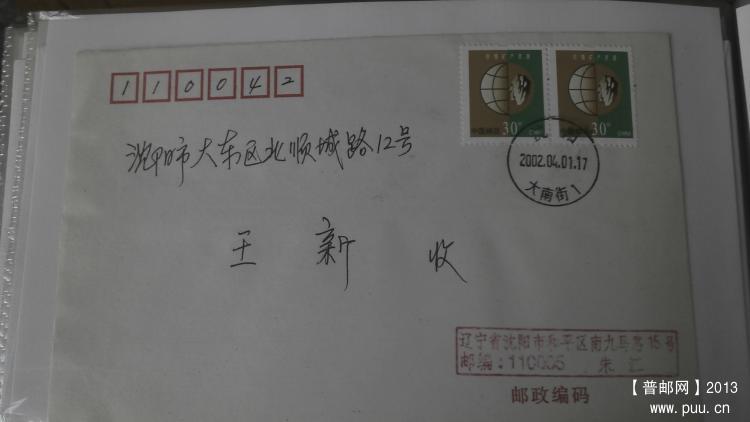 110042
珍惜矿产资源 珍惜矿产资源
中国邮政 30分 中国邮政 30分
沈阳市大东区北顺城路12号
2002.04.01.17
大南街1
王新 收
辽宁省沈阳市和平区南九马路15号
邮编：110005 朱江
邮政编码
【普邮网】2013
www.puu.cn